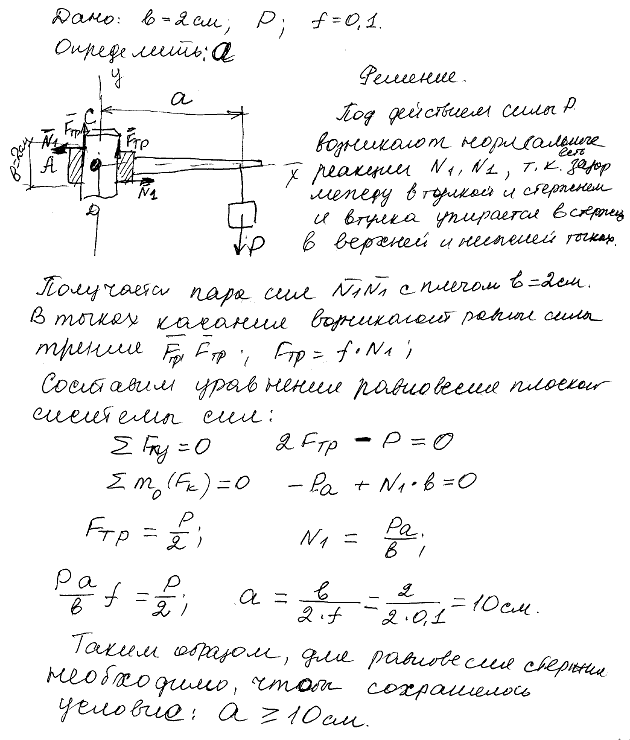 Дано: в=2см; P; f=0,1.
Определить: a
Решение.
y
a
C
F̅тр
F̅тр
N̅1
A
в=2см
O
x
N̅1
D
P̅
Под действием силы P
возникают нормальные
реакции N1, N1, т.к. есть зазор
между втулкой и стержнем
и втулка упирается в стержень
в верхней и нижней точках.
Получается пара сил N̅1N̅1 с плечом в=2см.
В точках касания возникают равные силы
трения F̅тр, F̅тр; Fтр = f·N1;
Составим уравнения равновесия плоской
системы сил:
ΣFкy=0 2Fтр - P = 0
Σm₀(Fк)=0 -Pa + N1·в=0
Fтр = P/2; N1 = Pa/в;
Pa/в f = P/2; a = в/2·f = 2/2·0,1 = 10см.
Таким образом, для равновесия стержня
необходимо, чтобы сохранялось
условие: a ≥ 10см.